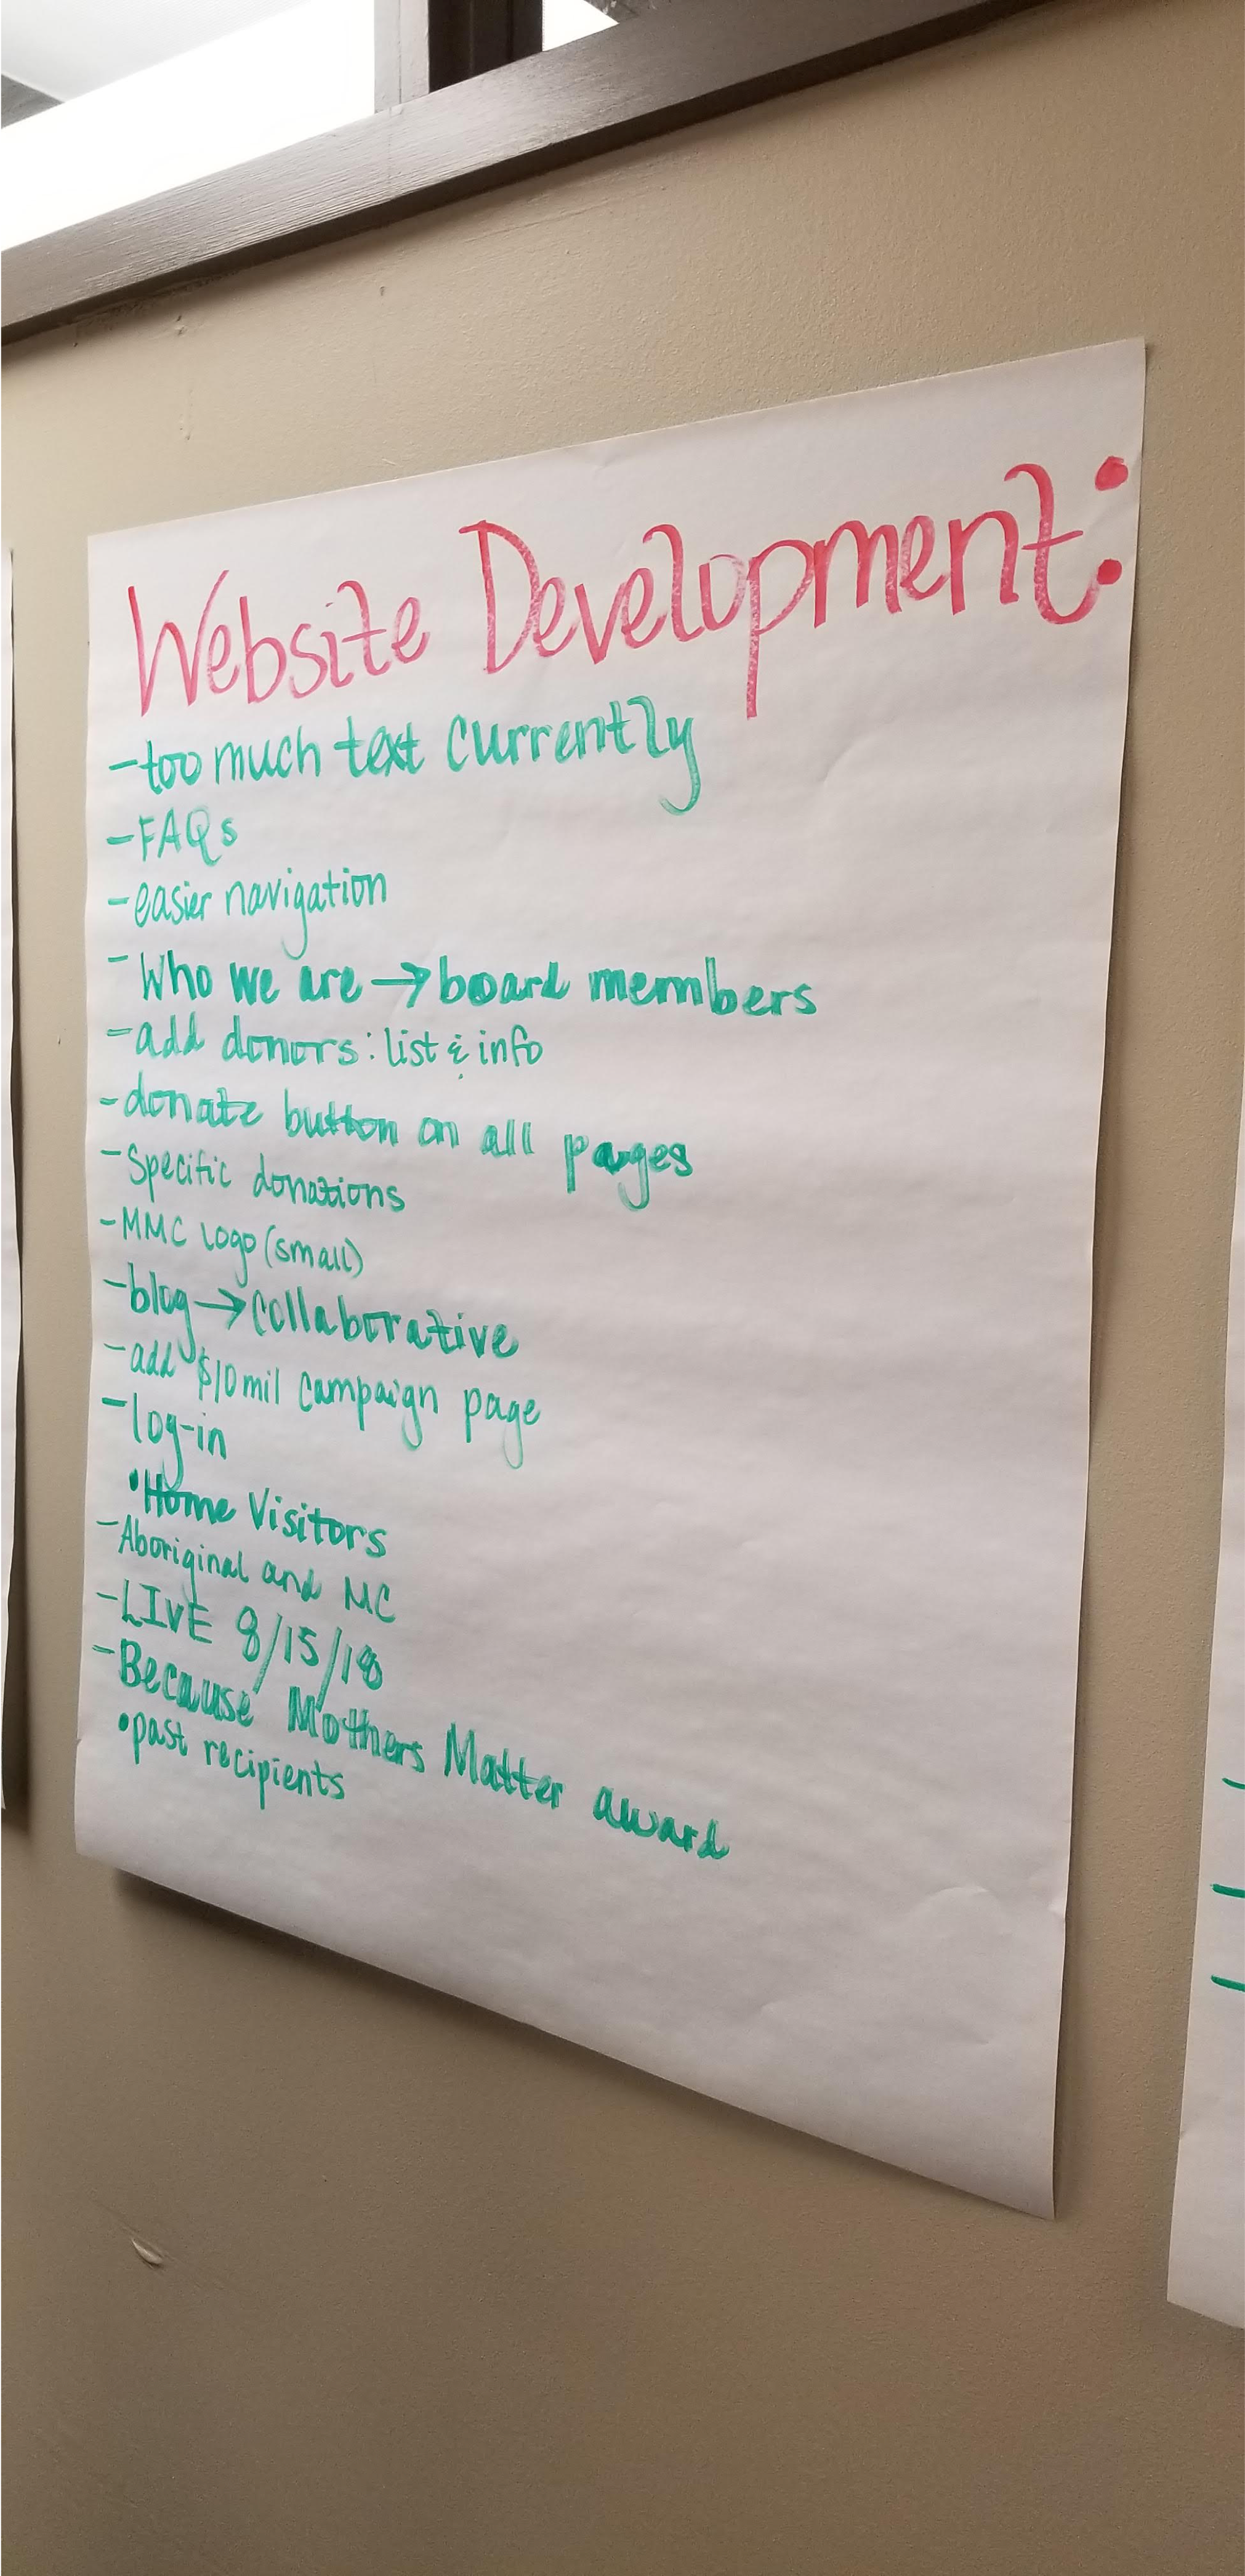 Website Development:
-too much text currently
-FAQs
-easier navigation
-Who we are → board members
-add donors: list & info
-donate button on all pages
-Specific donations
-MMC logo (small)
-blog → collaborative
-add $10mil campaign page
-log-in
•Home Visitors
-Aboriginal and MC
-LIVE 8/15/18
-Because Mothers Matter award
•past recipients